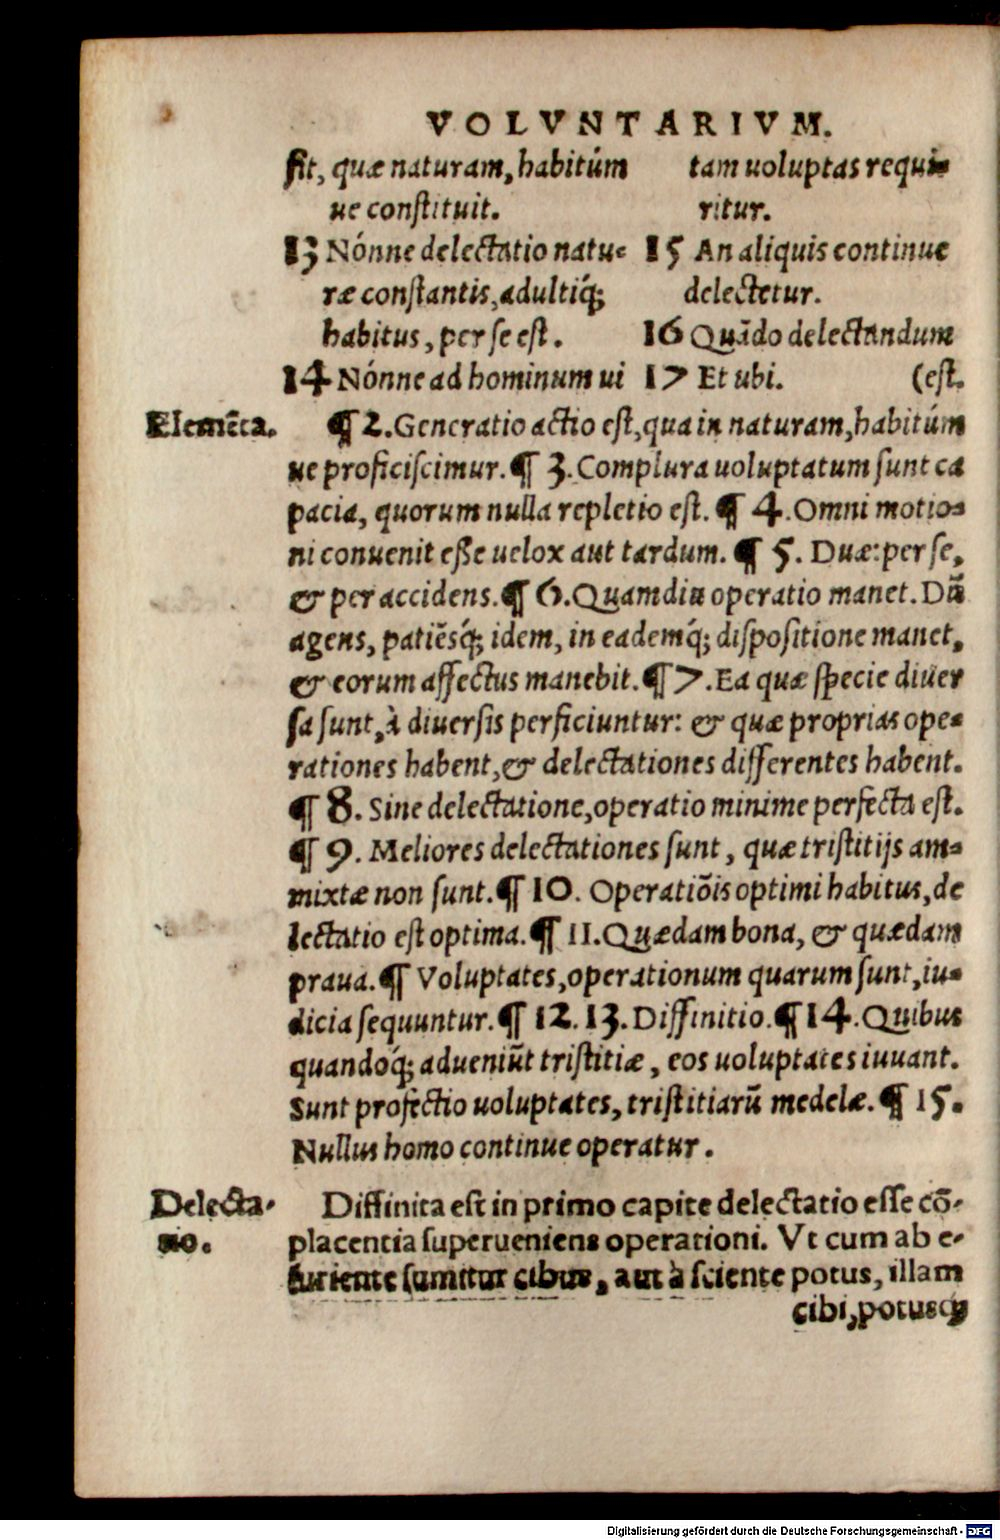 VOLVNTARIVM.
ſit, quæ naturam, habitúm
ue conſtituit.
13 Nónne delectatio natu-
ræ conſtantis, adultiq́;
habitus, per ſe eſt.
14 Nónne ad hominum ui
tam uoluptas requi-
ritur.
15 An aliquis continue
delectetur.
16 Quãdo delectandum
17 Et ubi. (eſt.
Elemẽta.
¶ 2. Generatio actio eſt, qua in naturam, habitúm
ue proficiſcimur. ¶ 3. Complura uoluptatum ſunt ca
pacia, quorum nulla repletio eſt. ¶ 4. Omni motio-
ni conuenit eſſe uelox aut tardum. ¶ 5. Duæ: per ſe,
& per accidens. ¶ 6. Quamdiu operatio manet. Dũ
agens, patiẽsq́; idem, in eademq́; diſpoſitione manet,
& eorum affectus manebit. ¶ 7. Ea quæ ſpecie diuer
ſa ſunt, à diuerſis perficiuntur: & quæ proprias ope-
rationes habent, & delectationes differentes habent.
¶ 8. Sine delectatione, operatio minime perfecta eſt.
¶ 9. Meliores delectationes ſunt, quæ triſtitijs am-
mixtæ non ſunt. ¶ 10. Operatiõis optimi habitus, de
lectatio eſt optima. ¶ 11. Quædam bona, & quædam
praua. ¶ Voluptates, operationum quarum ſunt, iu-
dicia ſequuntur. ¶ 12. 13. Diffinitio. ¶ 14. Quibus
quandoq́; adueniũt triſtitiæ, eos uoluptates iuuant.
Sunt profectio uoluptates, triſtitiarũ medelæ. ¶ 15.
Nullus homo continue operatur.
Delecta-
tio.
Diffinita eſt in primo capite delectatio eſſe cõ-
placentia ſuperueniens operationi. Vt cum ab e-
ſuriente ſumitur cibus, aut à ſciente potus, illam
cibi, potusq́;
Digitalisierung gefördert durch die Deutsche Forschungsgemeinschaft - DFG